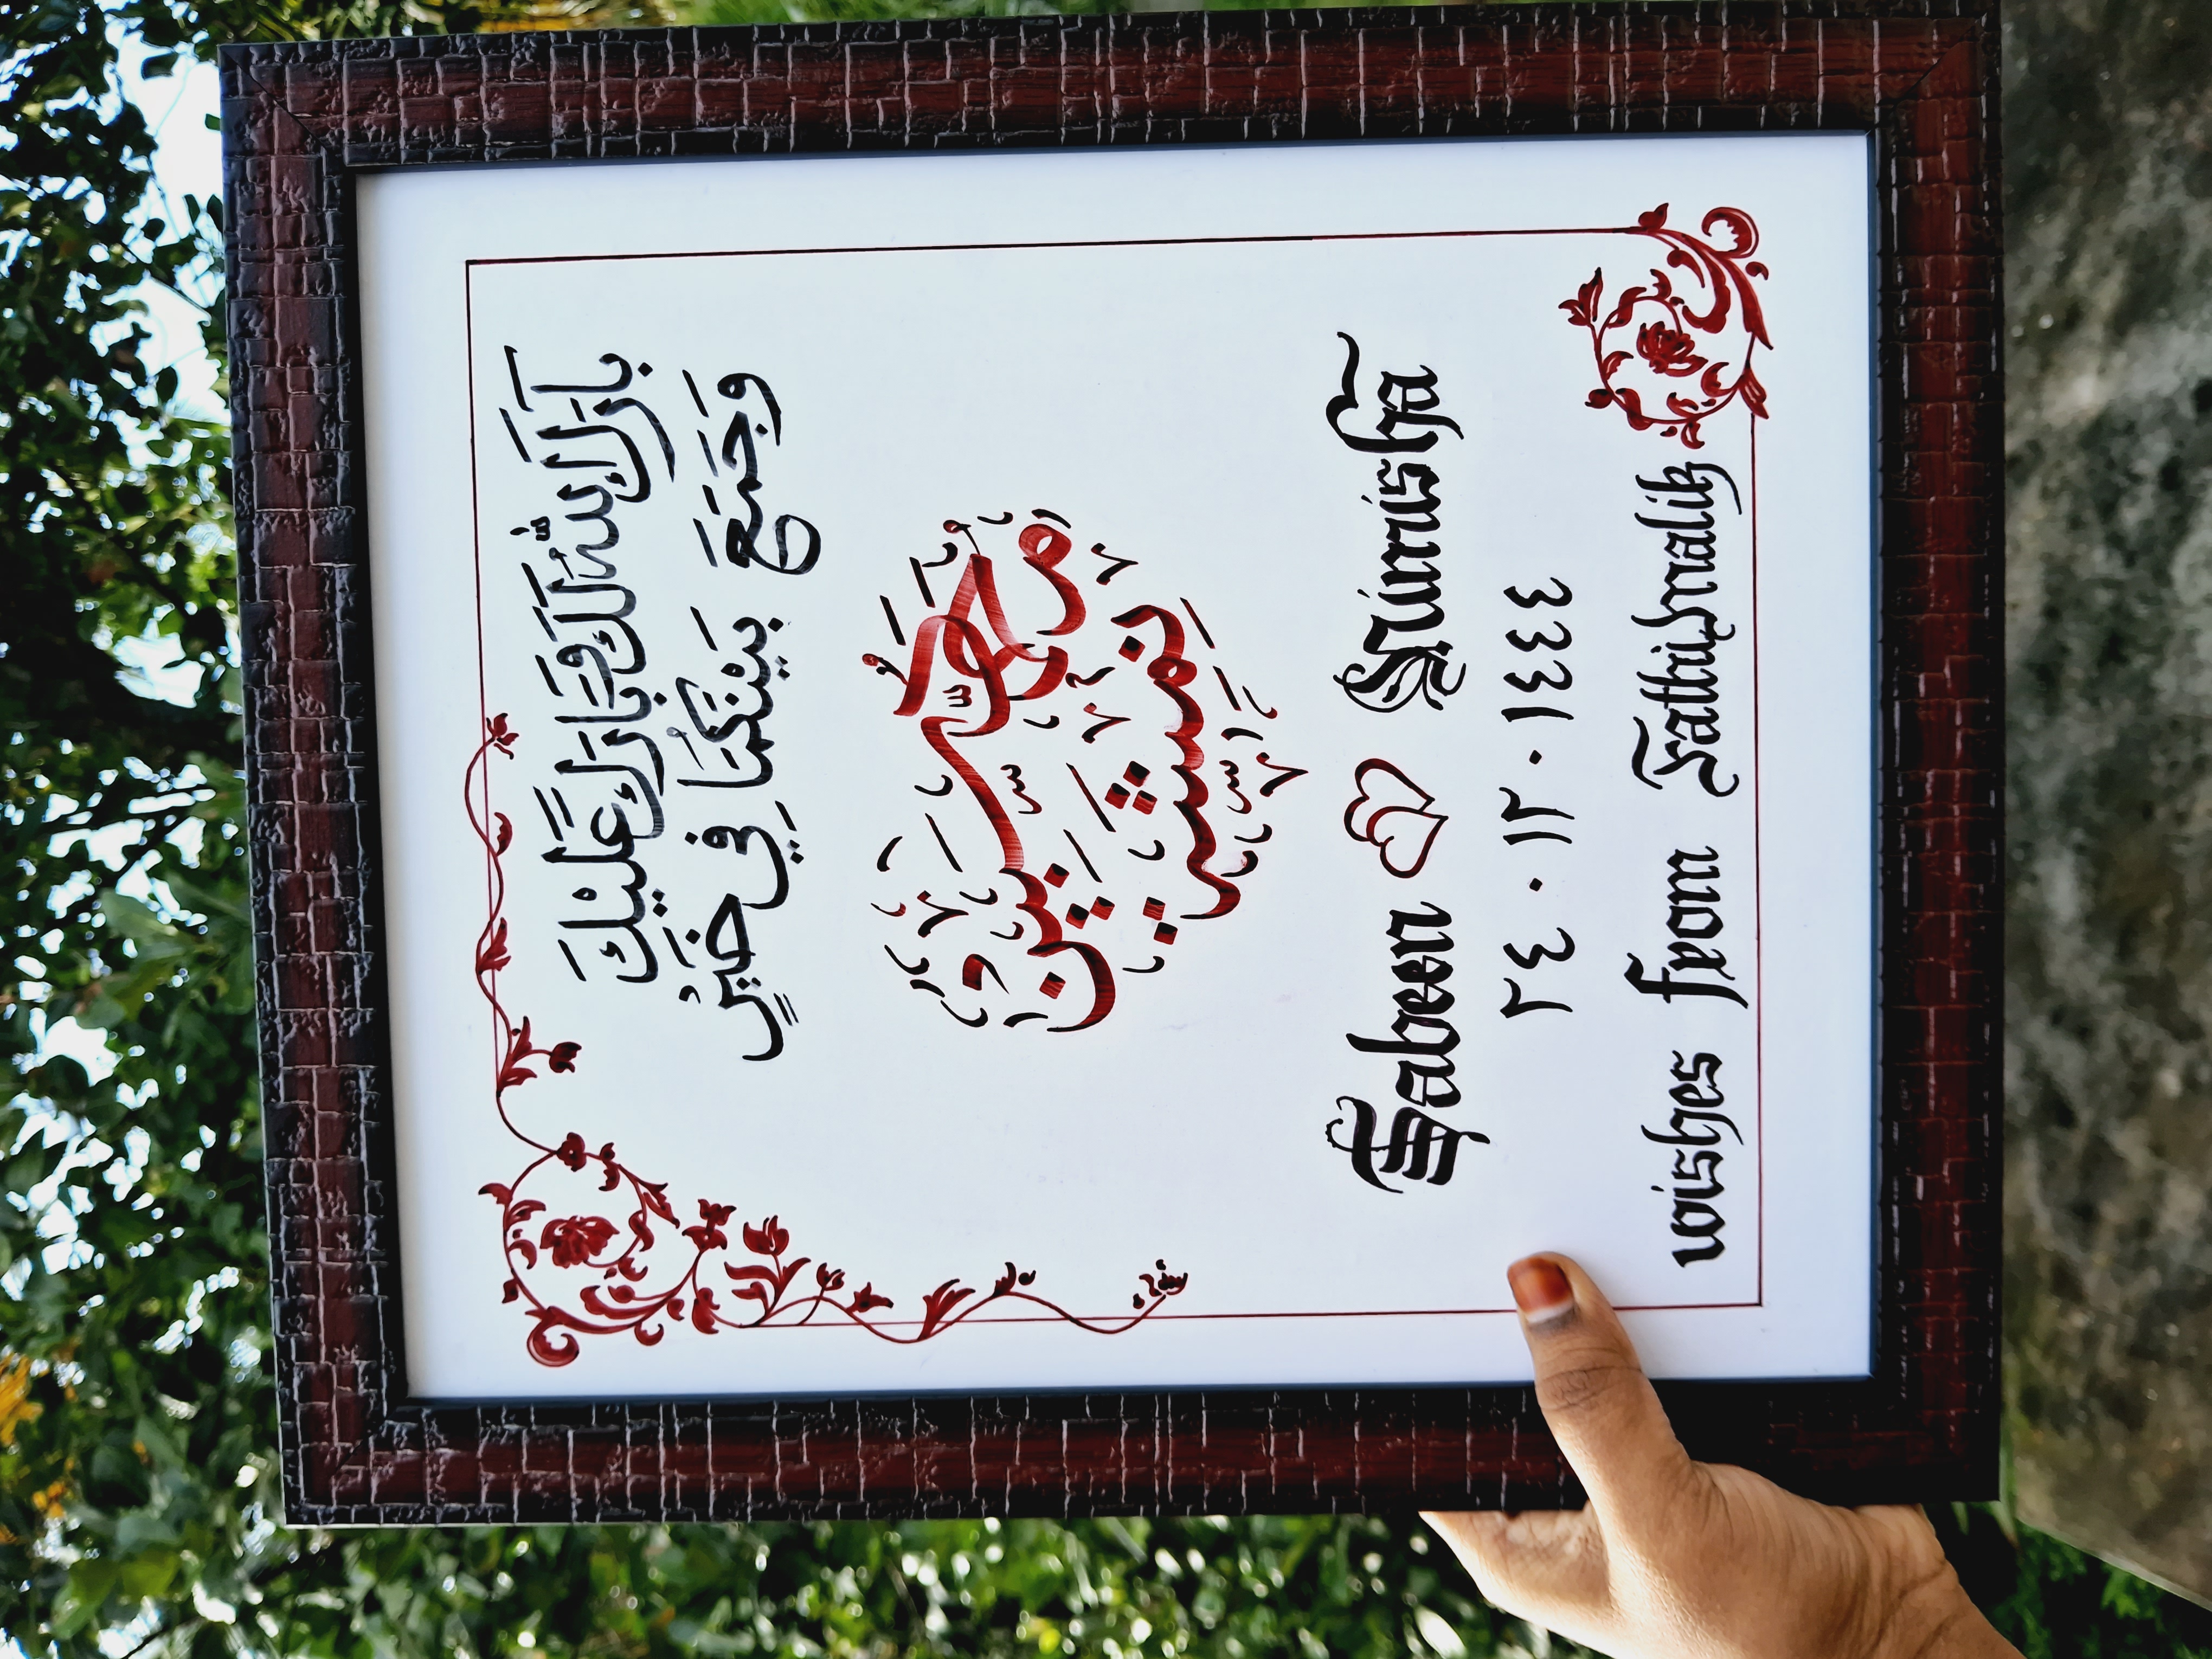 بَارَكَ اللهُ لَكَ وَبَارَكَ عَلَيْكَ
وَجَمَعَ بَيْنَكُمَا فِي خَيْرٍ
مُحَمَّد سَبِين
نِمِيشَة
Sabeen Nimisha
٢٤ . ١٢ . ١٤٤٤
wishes from Fathimalik